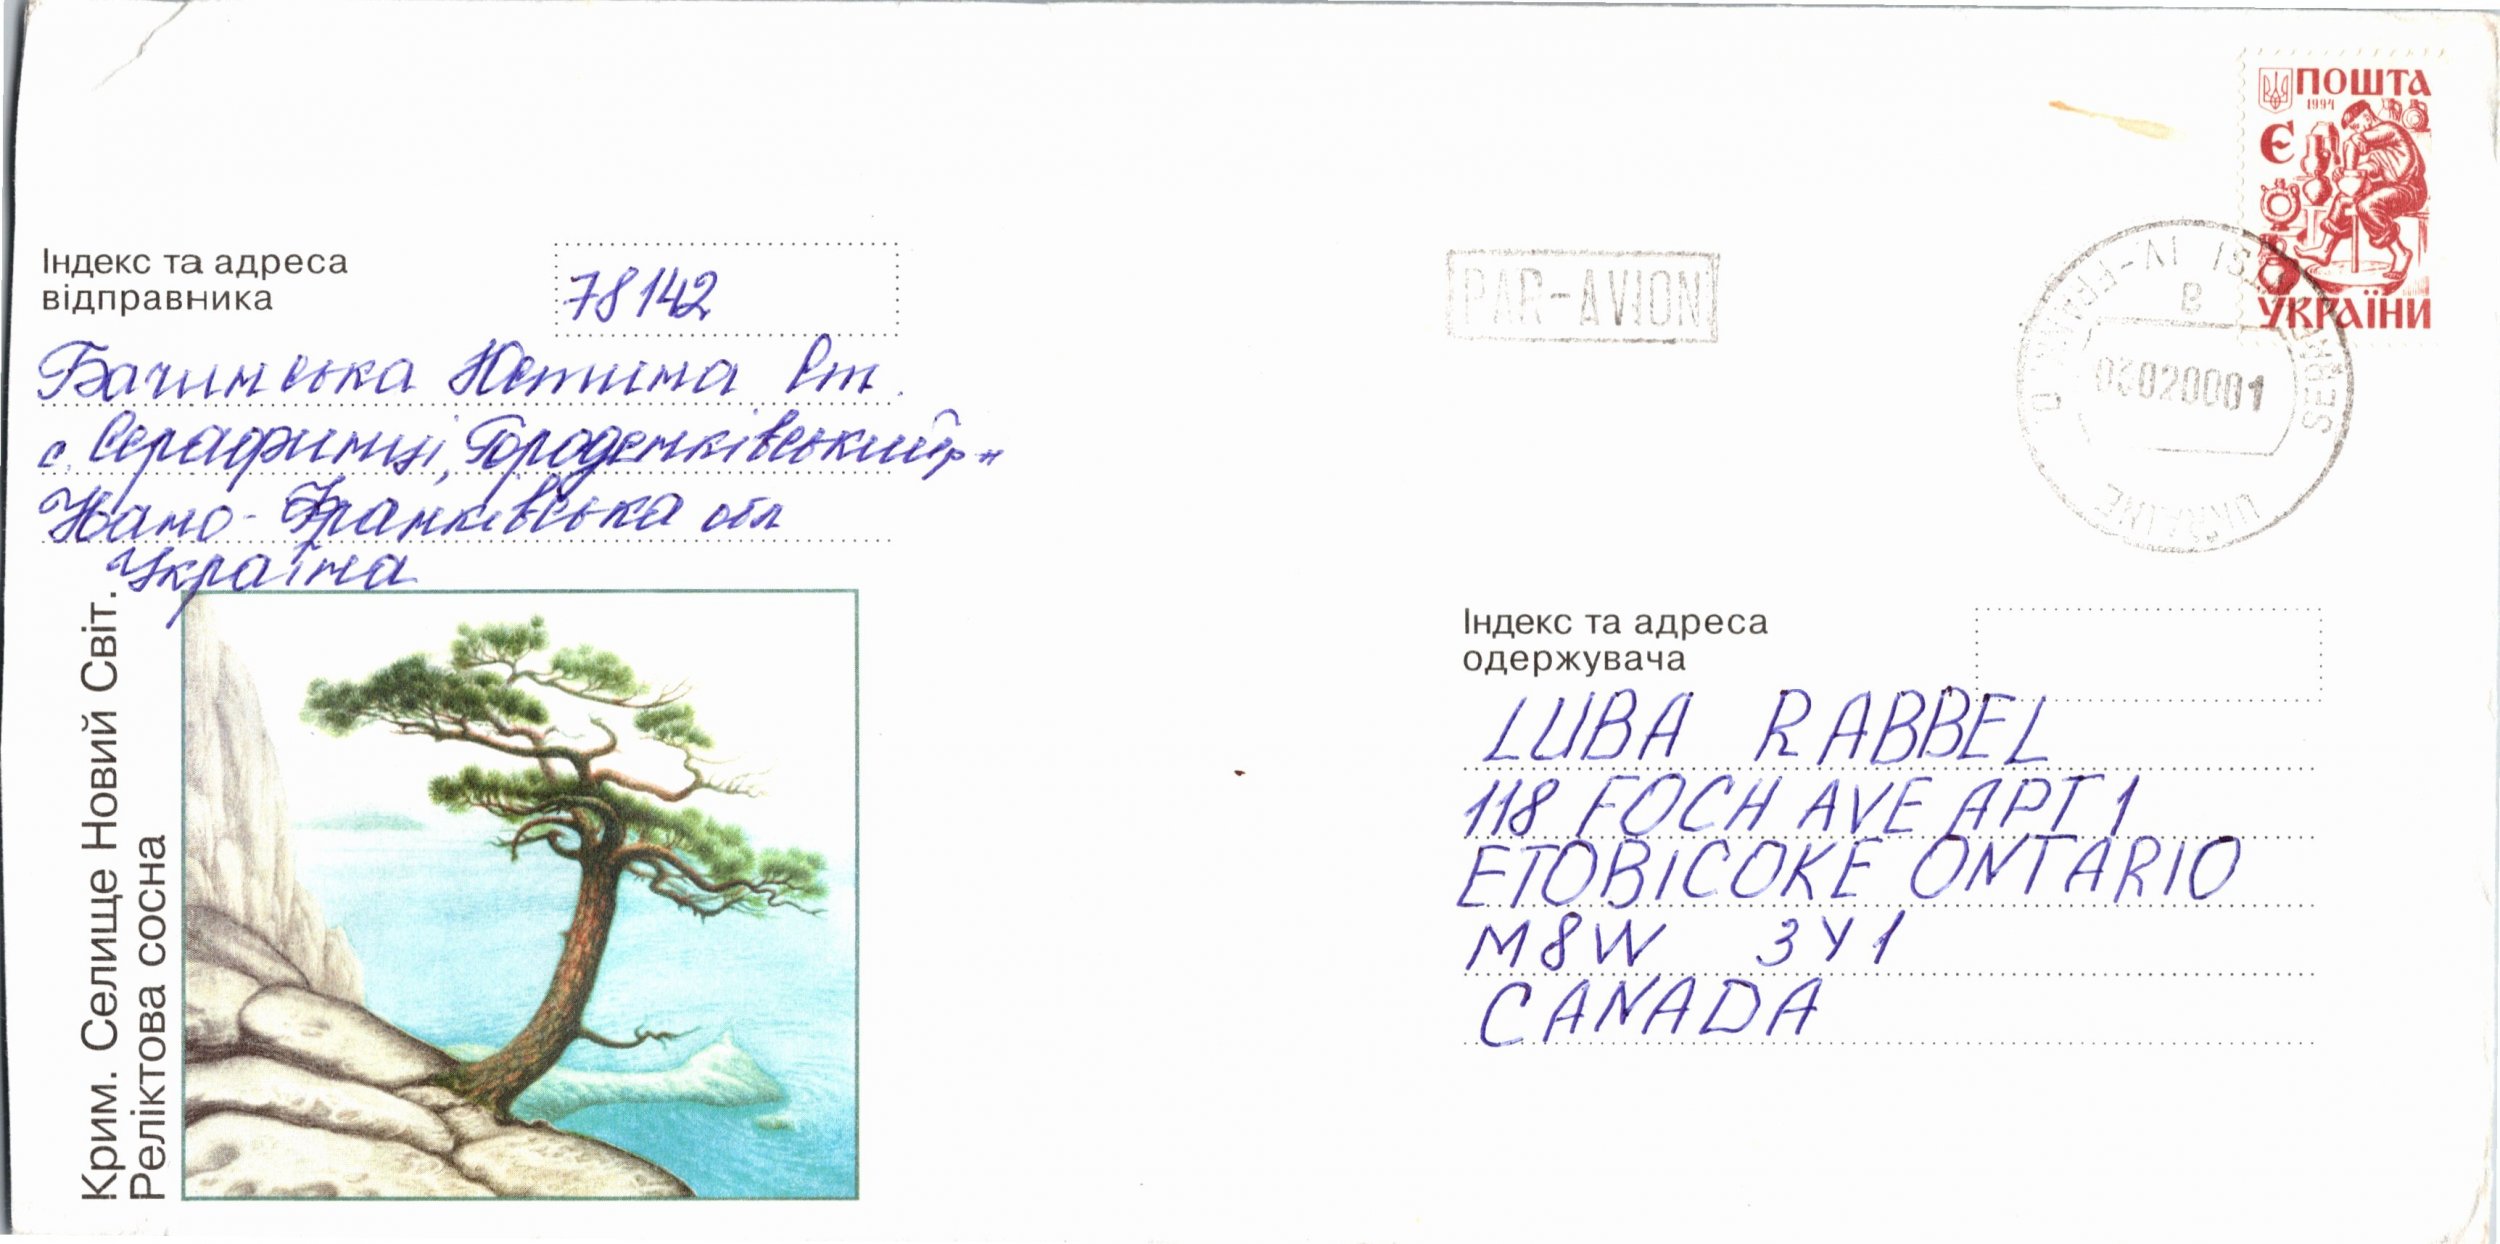 ПОШТА
1994
Є
УКРАЇНИ
PAR-AVION
UKRAINE
Індекс та адреса
відправника
78142
Бачинська Юстина Ст.
с. Серафинці, Городенківський р-н
Івано-Франківська обл
Україна
Крим. Селище Новий Світ.
Реліктова сосна
Індекс та адреса
одержувача
LUBA RABBEL
118 FOCH AVE APT 1
ETOBICOKE ONTARIO
M8W 3Y1
CANADA